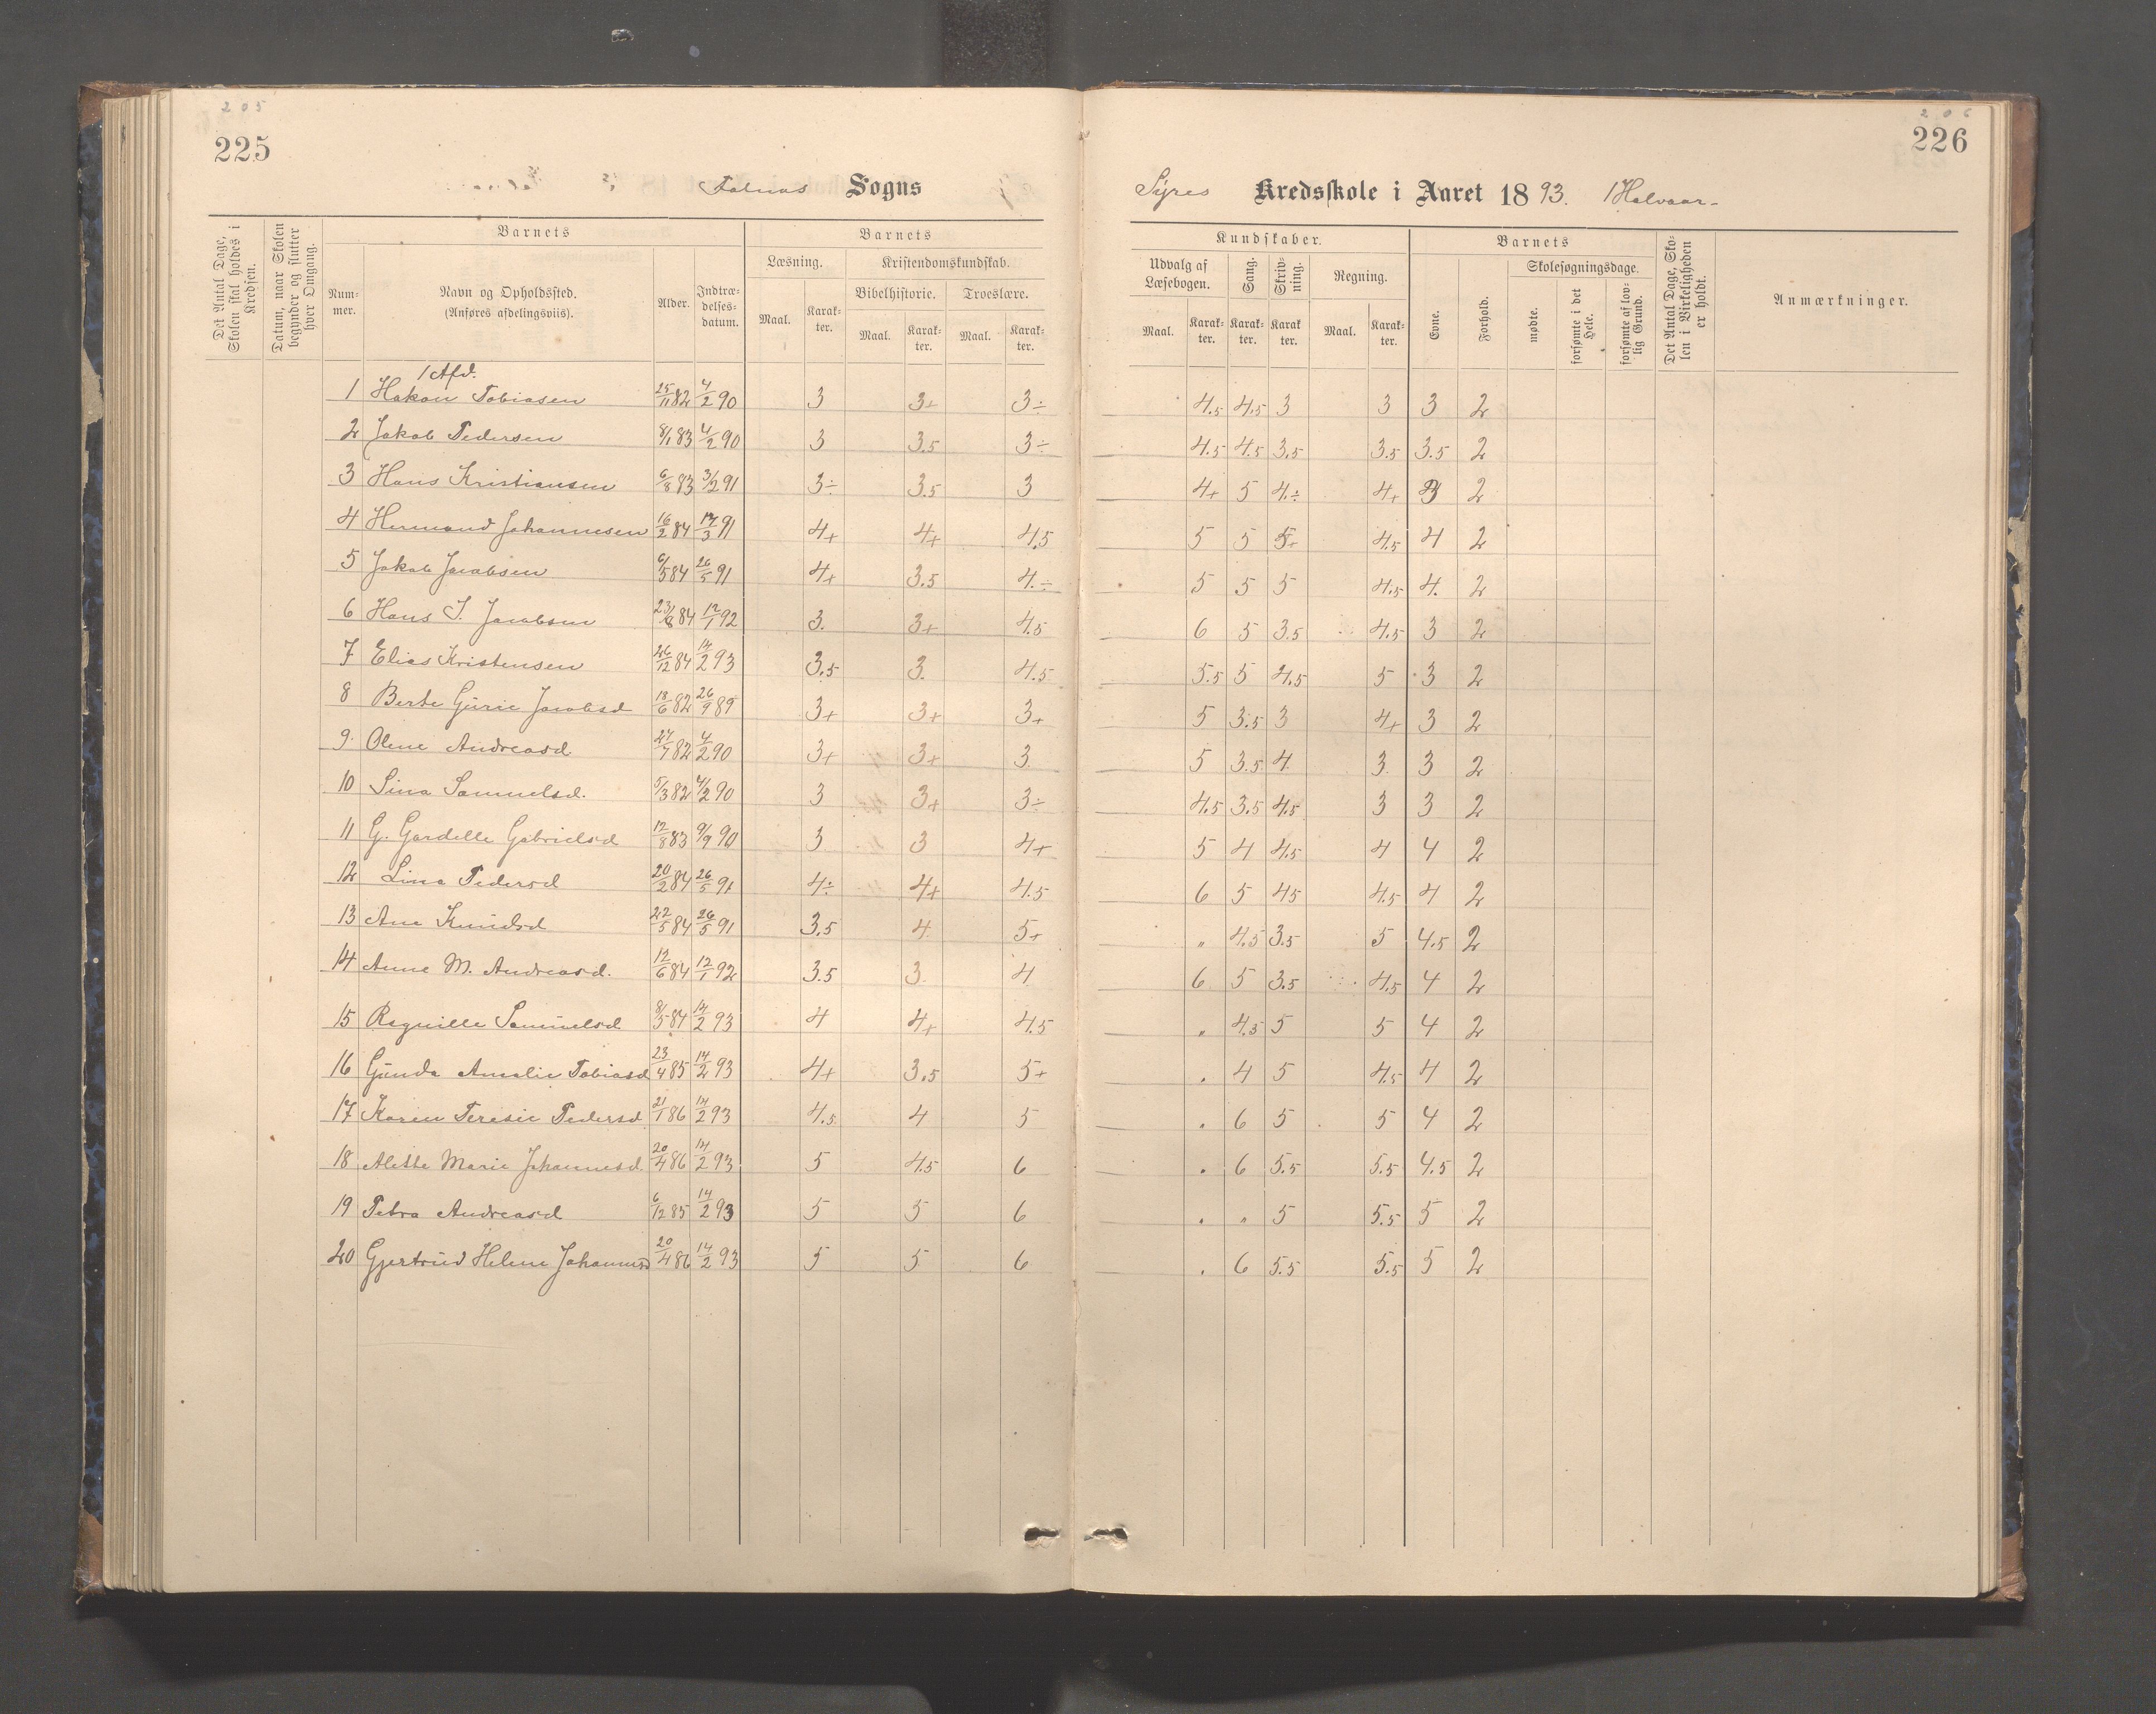 205
225
Falnæs Sogns
206
226
Syres Kredsskole i Aaret 1893. 1 Halvaar-
Det Antal Dage, Skolen skal holdes i Kredsen.
Datum, naar Skolen begynder og slutter hver Omgang.
Barnets
Num-mer.
Navn og Opholdssted. (Anføres afdelingsviis).
Alder.
Indtræ-delses-datum.
Barnets
Læsning.
Maal. Karak-ter.
Kristendomskundskab.
Bibelhistorie. Troeslære.
Maal. Karak-ter. Maal. Karak-ter.
Kundskaber.
Udvalg af Læsebogen. Sang. Skriv-ning. Regning.
Maal. Karak-ter. Karak-ter. Karak-ter. Maal. Karak-ter.
Barnets
Evne. Forhold.
Skolesøgningsdage.
mødte. forsømte i det Hele. forsømte af lov-lig Grund.
Det Antal Dage, Sko-len i Virkeligheden er holdt.
Anmærkninger.
1 Afd.
1 Hakon Tobiasen 25/11 82 4/2 90 3 3+ 3÷ 4.5 4.5 3 3 3 2
2 Jakob Pedersen 8/1 83 4/2 90 3 3.5 3÷ 4.5 4.5 3.5 3.5 3.5 2
3 Hans Kristiansen 6/8 83 3/2 91 3÷ 3.5 3 4+ 5 4÷ 4+ 3 2
4 Hermand Johannesen 16/2 84 17/3 91 4+ 4+ 4.5 5 5 5+ 4.5 4 2
5 Jakob Jacobsen 6/5 84 26/5 91 4+ 3.5 4÷ 5 5 5 4.5 4. 2
6 Hans J. Jacobsen 23/8 84 12/1 92 3. 3+ 4.5 6 5 3.5 4.5 3 2
7 Elias Kristensen 26/12 84 14/2 93 3.5 3. 4.5 5.5 5 4.5 5 3 2
8 Berte Gurie Jacobsd 18/6 82 26/9 89 3+ 3+ 3+ 5 3.5 3 4+ 3 2
9. Olene Andreasd. 27/7 82 4/2 90 3+ 3+ 3 5 3.5 4. 3. 3 2
10 Sina Samuelsd. 5/3 82 4/2 90 3 3+ 3÷ 4.5 3.5 4.5 3 3 2
11 G. Gardelle Gabrielsd 12/8 83 9/9 90 3 3 4+ 5 4 4.5 4 4 2
12 Lina Pedersd 20/2 84 26/5 91 4÷ 4+ 4.5 6 5 45 4.5 4 2
13 Ane Knudsd 22/5 84 26/5 91 3.5 4 5+ " 4.5 3.5 5 4.5 2
14 Anne M. Andreasd. 12/6 84 12/1 92 3.5 3. 4 6 5 3.5 4.5 4 2
15 Ragnille Samuelsd 8/5 84 14/2 93 4 4+ 4.5 " 4.5 5 5 4 2
16 Gunda Amalie Tobiasd 23/4 85 14/2 93 4+ 3.5 5+ . 4 5 4.5 4 2
17 Karen Teresie Pedersd 21/1 86 14/2 93 4.5 4 5 . 6 5 5 4 2
18 Alette Marie Johannesd 20/4 86 14/2 93 5 4.5 6 . 6 5.5 5.5 4.5 2
19 Petra Andreasd 6/12 85 14/2 93 5 5 6 . " 5 5.5 5 2
20 Gjertrud Helene Johannesd 20/4 86 14/2 93 5 5 6 . 6 5.5 5.5 5 2